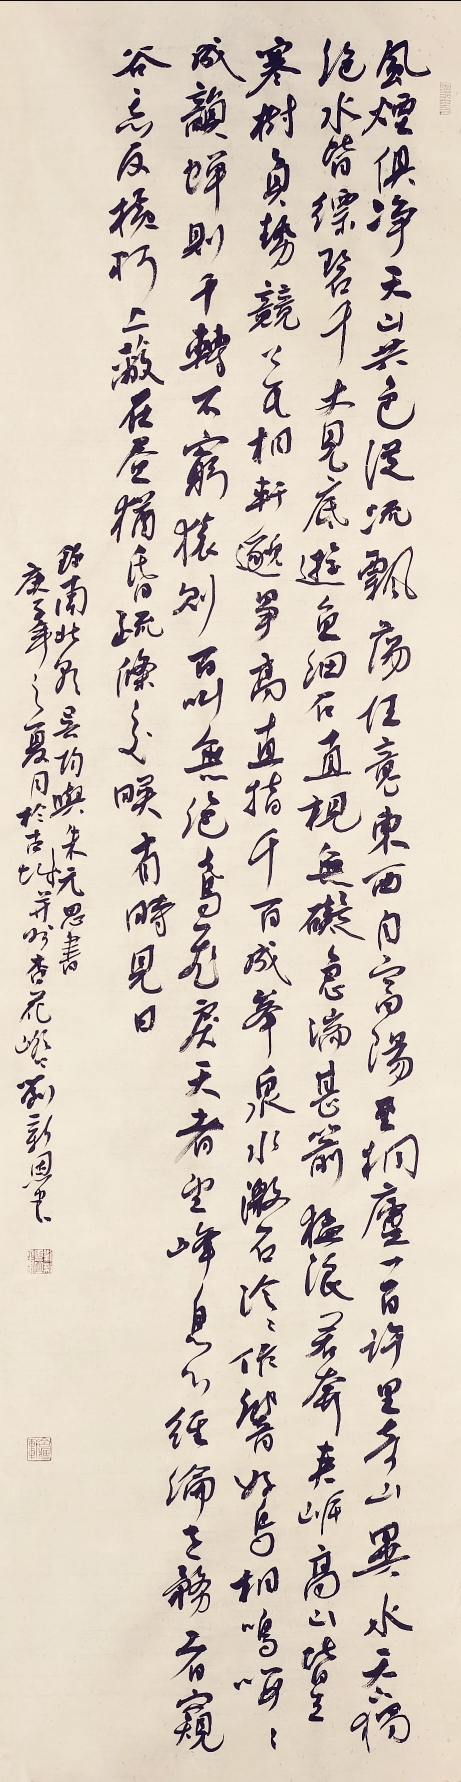 風煙俱净天山共色從流飄蕩任意東西自富陽至桐廬一百許里奇山異水天下獨
絶水皆縹碧千丈見底遊魚細石直視無礙急湍甚箭猛浪若奔夾岸高山皆生
寒樹負勢競上互相軒邈爭高直指千百成峯泉水激石泠泠作響好鳥相鳴嚶嚶
成韻蟬則千轉不窮猿則百叫無絶鳶飛戾天者望峰息心經綸世務者窺
谷忘反橫柯上蔽在晝猶昏疏條交映有時見日
錄南北朝吳均與朱元思書
庚子年之夏月於古城并州杏花嶺劉新恩書